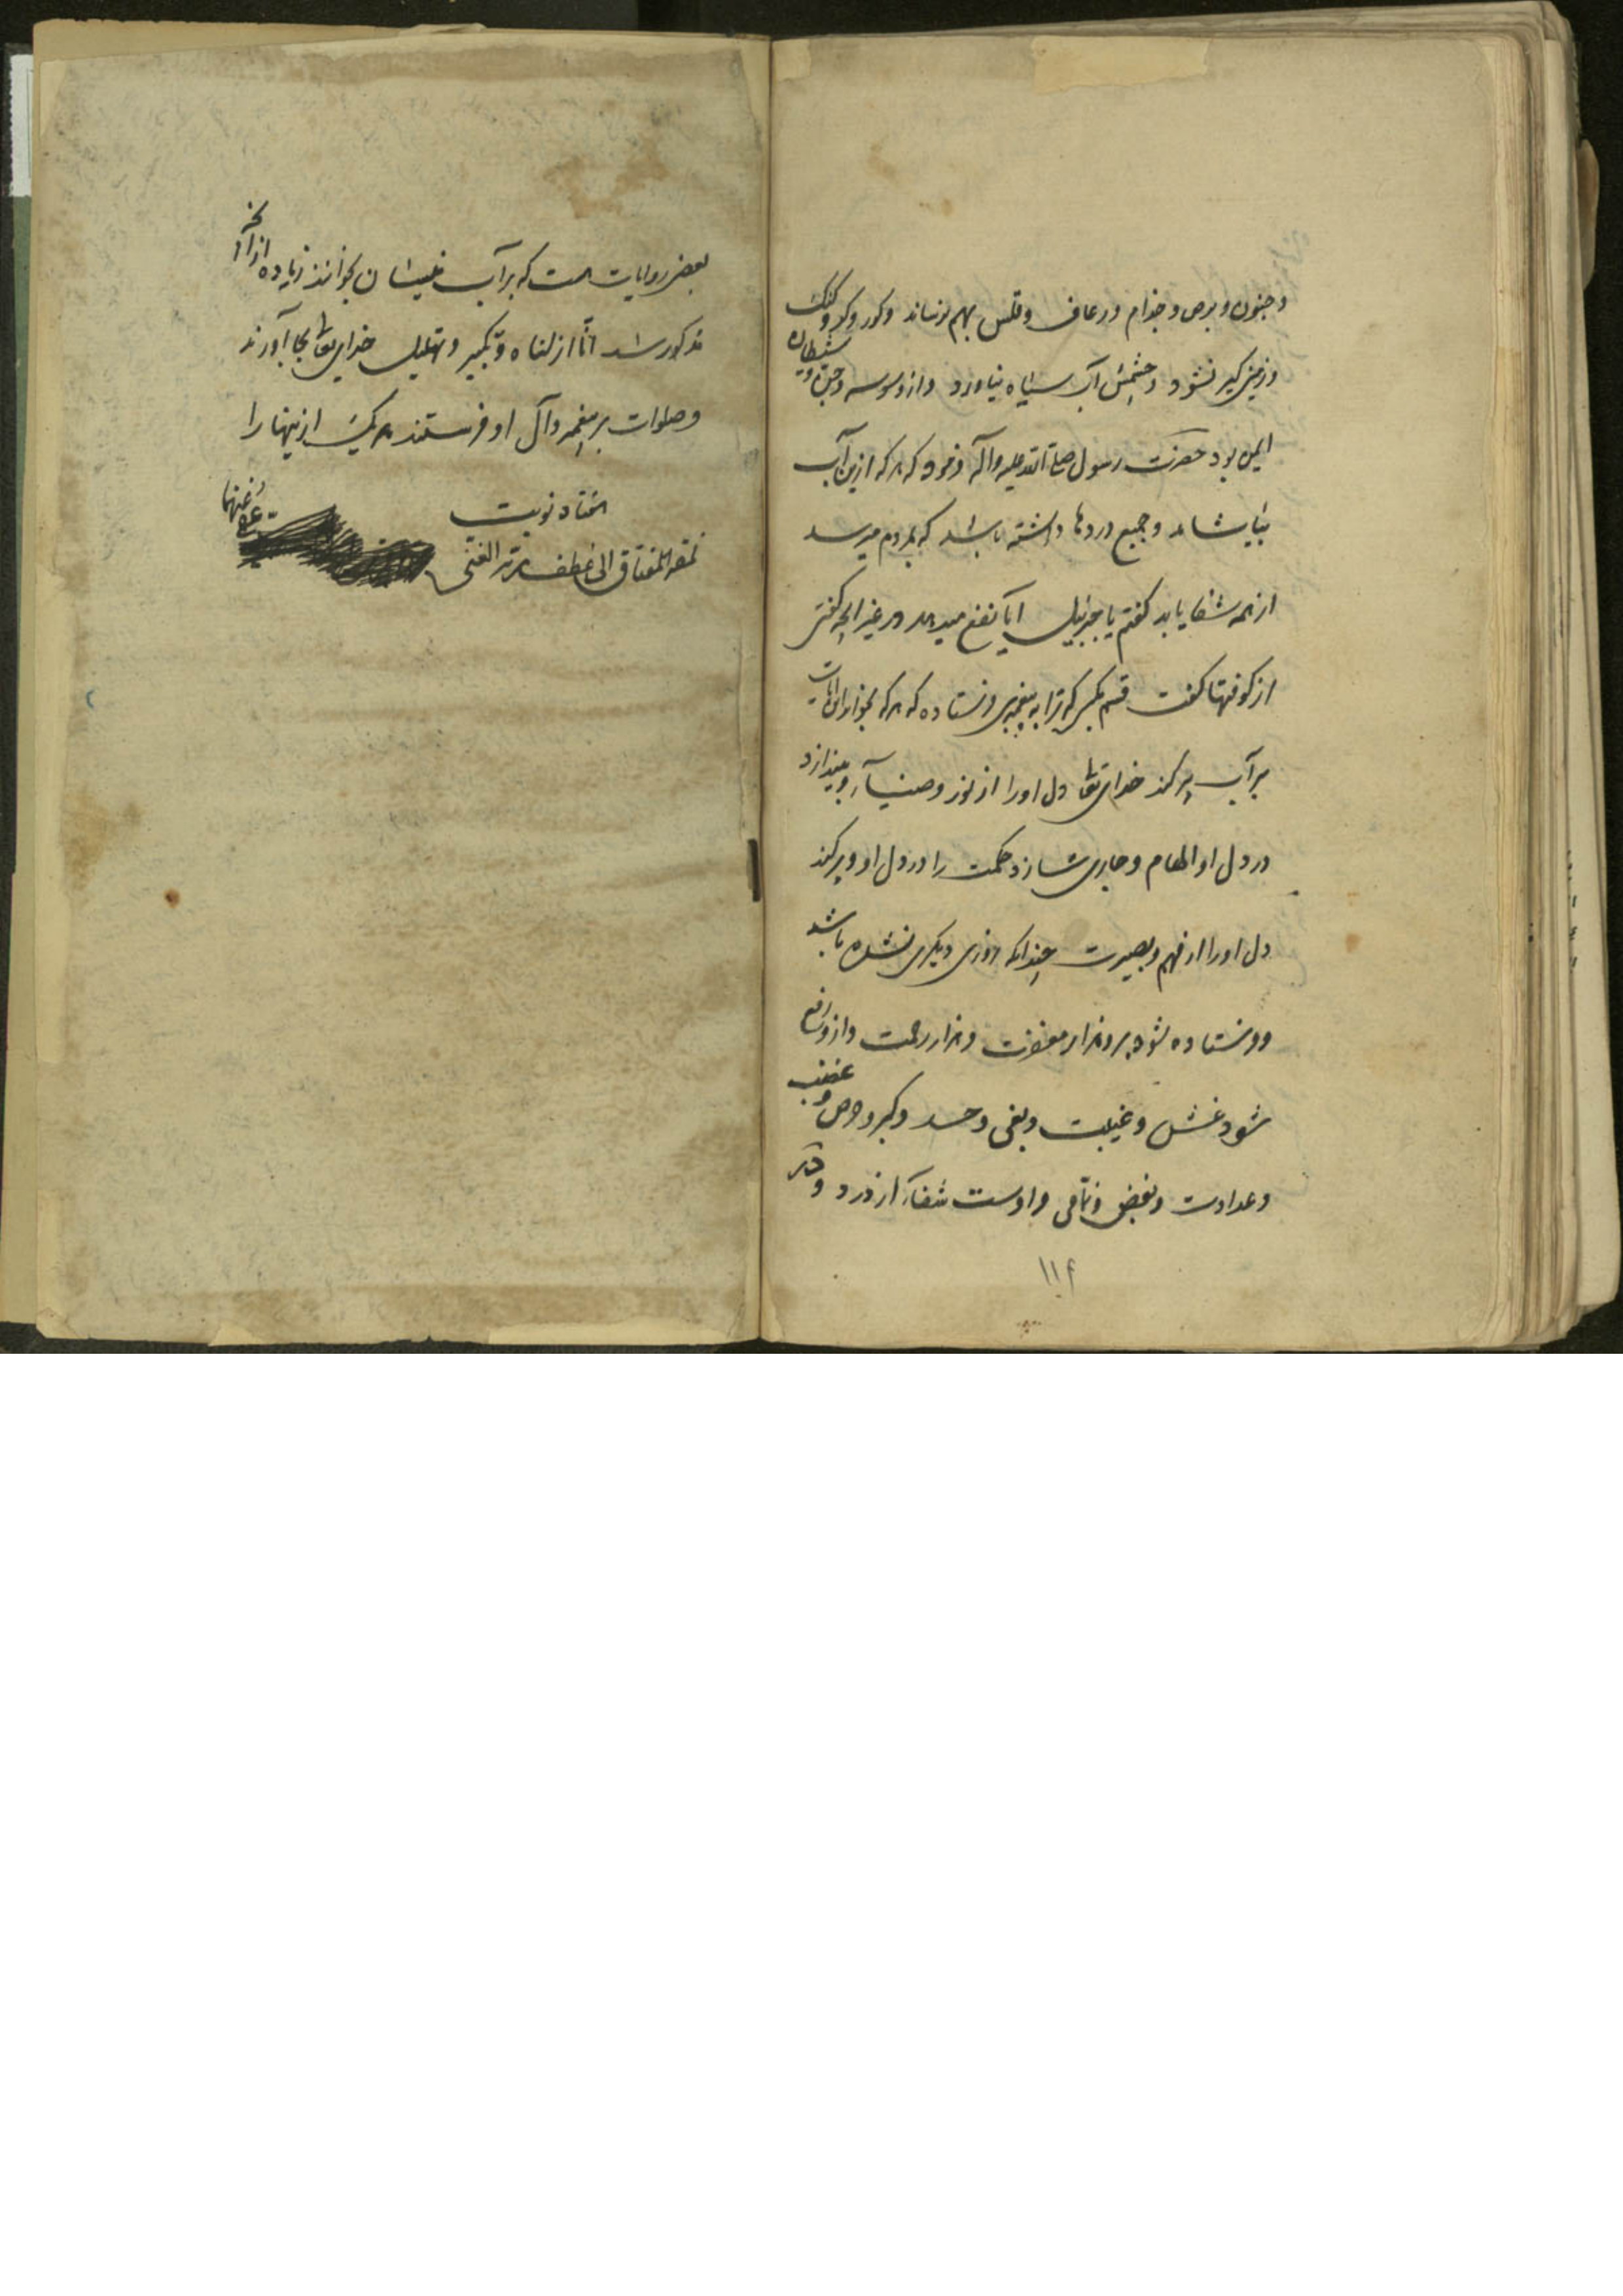 و جنون و برص و جذام و رعاف و قلس بهم نرساند و کور و کر و گنگ
و زمین گیر نشود و چشمش آب سیاه نیاورد و از وسوسه و جن و شیطان
ایمن بود حضرت رسول صلی الله علیه و آله فرمود که هر که ازین آب
بیاشامد و جمیع دردها داشته باشد که بمردم میرسد
از همه شفا یابد گفتم یا جبرئیل ایا نفع میدهد در غیر انچه گفتی
از کوفتها گفت قسم بکسی که ترا به پیغمبری فرستاده که هر که بخواند این ایات
بر آب پر کند خدای تعا دل او را از نور و ضیآء و بیندازد
در دل او الهام و جاری سازد حکمت را در دل او و پر کند
دل او را از فهم و بصیرت چندانکه روزی دیگری نشده باشد
و فرستاده شود برو هزار مغفرت و هزار رحمت و ازو رفع
شود غش و غیبت و بغی و حسد و کبر و حرص و غضب
و عداوت و بغض و نمامی و اوست شفاء از درد و در
۱۱۴
بعضی روایات هست که بر آب نیسان بخوانند زیاده از آنچه
مذکور شد انا انزلناه و تکبیر و تهلیل خدای تعا بجا آورند
و صلوات بر پیغمبر و آل او فرستند هر یک از ینها را
هفتاد نوبت
نمقه المفتاق الی عطف ربه الغنی عفی عنهما